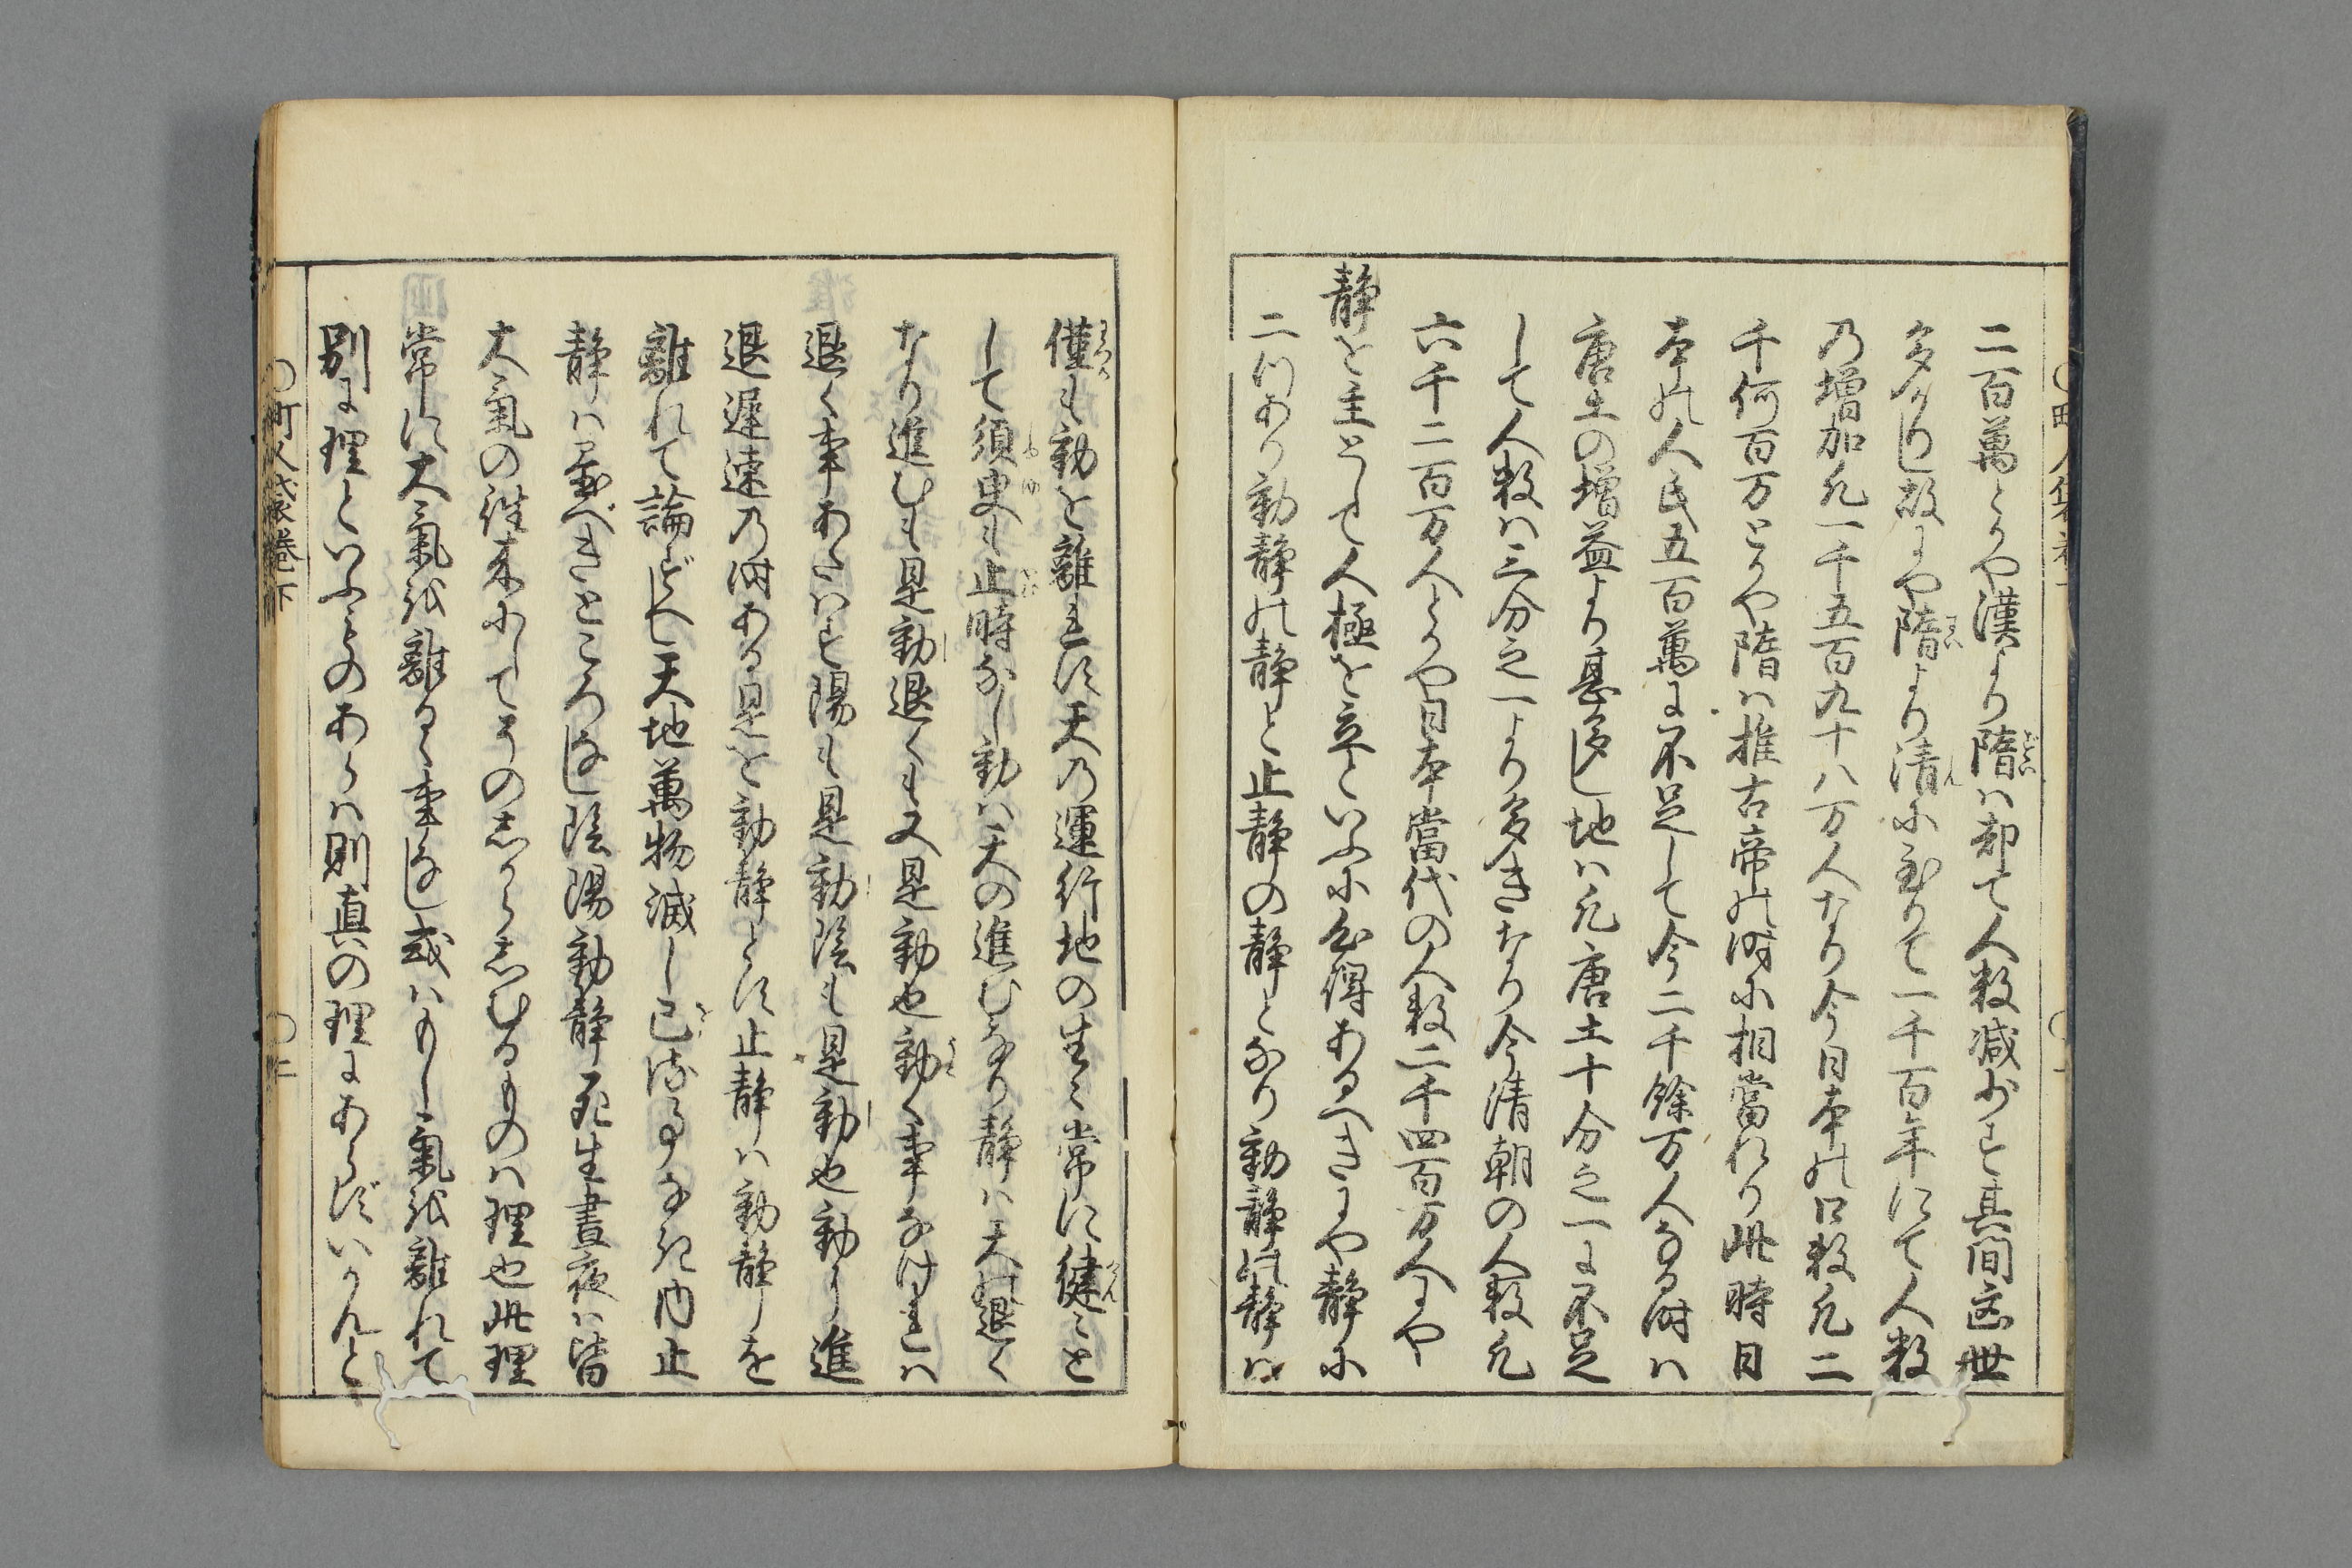 二百萬とかや漢より隋は却て人数減少す其間亟世
多かりし故にや隋より清に至りて一千百年にて人数
乃増加凡一千五百九十八万人なり今日本の口数凡二
千何百万とかや隋は推古帝の時に相當れり此時日
本の人民五百萬に不足して今二千餘万人なる時は
唐土の増益より甚多し地は凡唐土十分之一に不足
して人数は三分之一より多きなり今清朝の人数凡
六千二百万人とかや日本當代の人数二千四百万人にや
静を主として人極を立といふに心得あるへきにや静に
二つあり動静の静と止静の静となり動静の静は
僅も動を離れす天乃運行地の生々常に健々と
して須臾も止時なし動は天の進むなり静は天の退く
なり進むも是動退くも又是動也動く事なけれは
退く事あたはす陽も是動陰も是動也動に進
退遅速乃時ある是を動静とす止静は動静を
離れて論ずへし天地萬物滅し已ぬる事なき内止
静は至べきところなし陰陽動静死生晝夜は皆
大氣の往来にしてそのしからしむるものは理也此理
常に大氣を離るゝ事なし或はもし氣を離れて
別に理といふものあらは則真の理にあらずいかんと
町人袋巻下
〇二